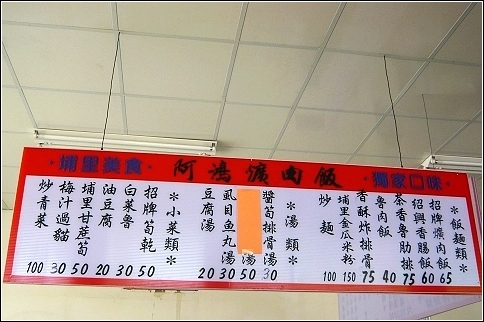 ·埔里美食· 阿嬌爌肉飯 ·獨家口味·
*飯麵類*
招牌爌肉飯 65
紹興香腸飯 60
茶香魯肋排 75
魯肉飯 40
香酥炸排骨 75
埔里金瓜米粉 150
炒麵 100
*湯類*
醬筍排骨湯 30
50
虱目魚丸湯 30
豆腐湯 20
*小菜類*
招牌筍乾 50
白菜魯 30
油豆腐 20
埔里甘蔗筍 50
梅汁過貓 30
炒青菜 100